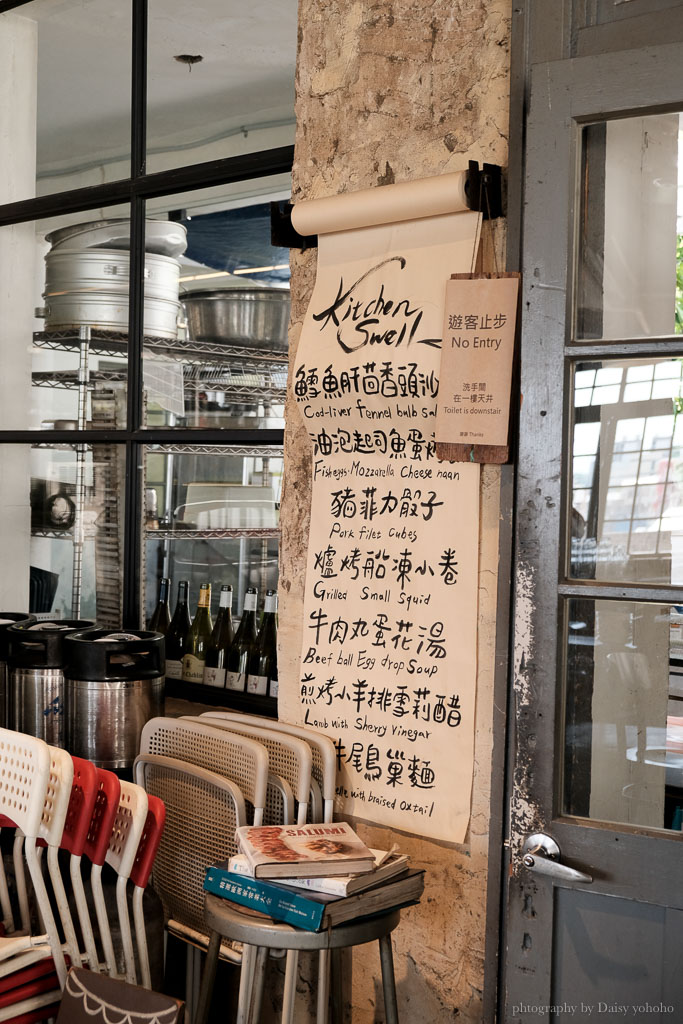 Kitchen
Swell
鱈魚肝茴香頭沙
Cod-liver fennel bulb sal
油泡起司魚蛋
Fish eggs. Mozzarella Cheese naan
豬菲力骰子
Pork filet Cubes
爐烤船凍小卷
Grilled Small Squid
牛肉丸蛋花湯
Beef ball Egg drop Soup
煎烤小羊排雪莉醋
Lamb with Sherry Vinegar
牛尾鳥巢麵
with braised Oxtail
遊客止步
No Entry
洗手間
在一樓天井
Toilet is downstair
謝謝 Thanks
SALUMI
photography by Daisy yohoho